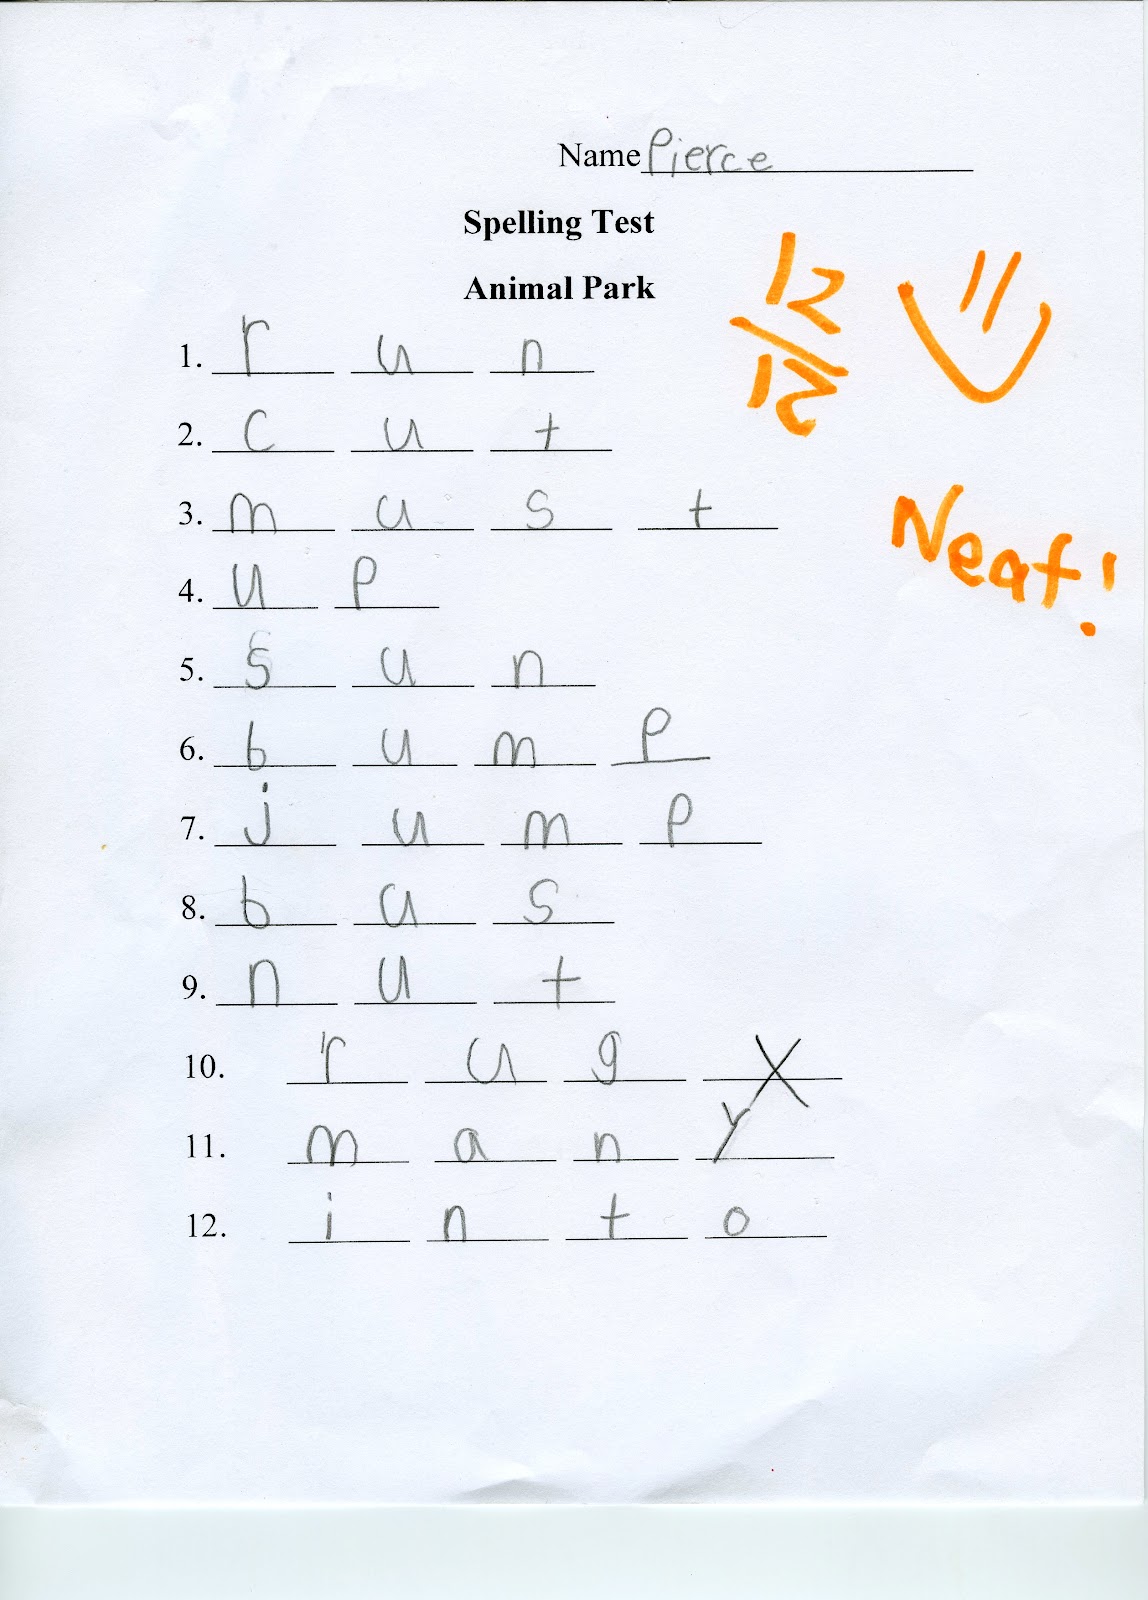 Name Pierce
Spelling Test
Animal Park
12
12
Neat!
1. r u n
2. c u t
3. m u s t
4. u p
5. s u n
6. b u m p
7. j u m p
8. b u s
9. n u t
10. r u g X
11. m a n y
12. i n t o